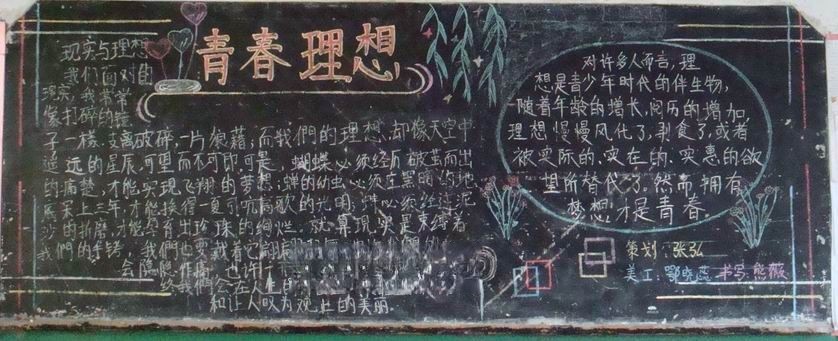 青春理想
现实与理想
我们面对的
现实,我常常
像打碎的镜
子一样支离破碎,一片狼藉,而我們的理想,却像天空中
遥远的星辰,可望而不可即,可是,蝴蝶必须经历破茧而出
的痛楚,才能实现飞翔的梦想;蝉的幼虫必须在黑暗的地
底呆上三年,才能换得一夏引吭高歌的光明;蚌必须经过泥
沙的折磨,才能孕育出珍珠的绚烂。就算現实是束缚着
我們的手铐,我們也要戴着它
会隐隐作痛,也许
给我們会在人生的
和让人叹为观止的美丽.
对许多人而言,理
想是青少年时代的伴生物,
随着年龄的增长,阅历的增加,
理想慢慢风化了,剥食了,或者
被实际的、实在的、实惠的欲
望所替代了.然而,拥有
梦想才是青春.
策划:张弘
美工:鄂晓蕊 书写:熊薇